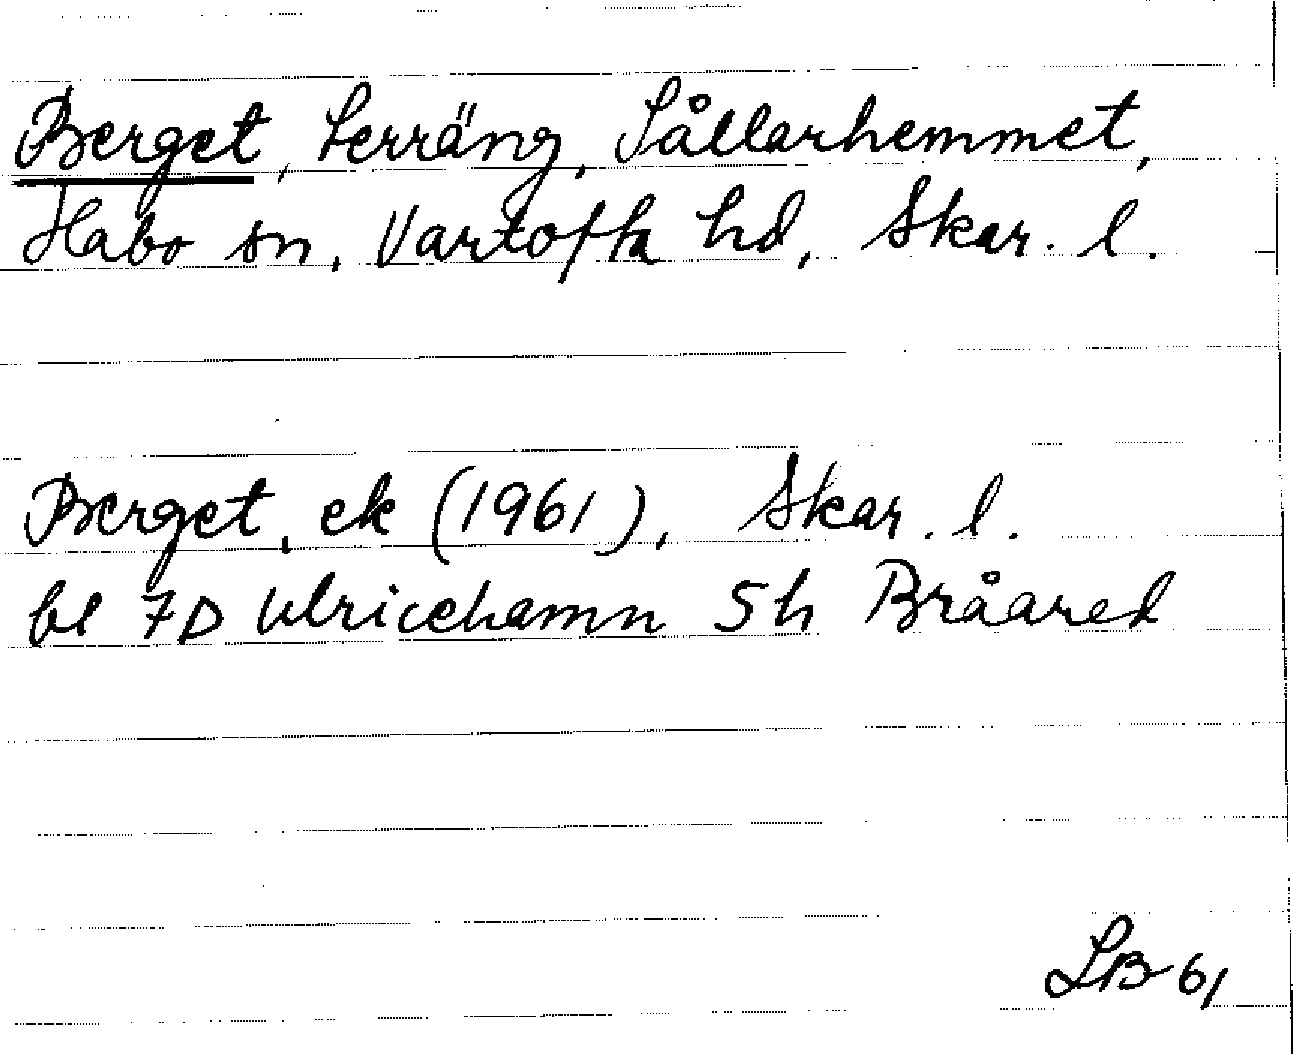 Berget, terräng, Sållarhemmet,
Habo sn, Vartofta hd, Skar. l.
Berget, ek (1961), Skar. l.
bl 7D Ulricehamn 5h Bråared
LB 61